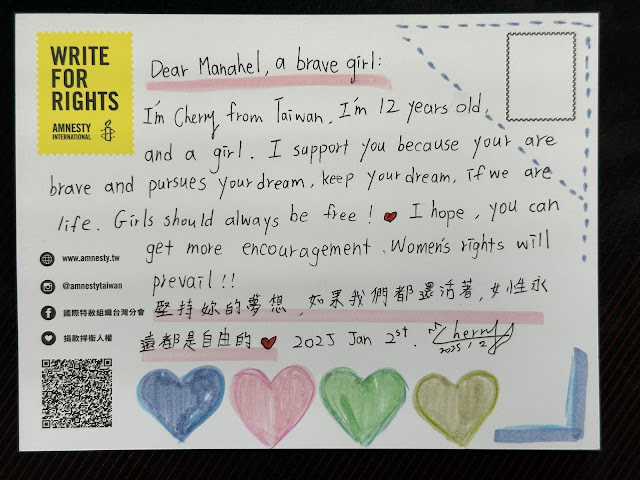 WRITE
FOR
RIGHTS
AMNESTY
INTERNATIONAL
Dear Manahel, a brave girl:
I'm Cherry from Taiwan, I'm 12 years old,
and a girl. I support you because your are
brave and pursues your dream, keep your dream, if we are
life. Girls should always be free! I hope, you can
get more encouragement. Women's rights will
prevail!!
堅持妳的夢想，如果我們都還活著，女性永
遠都是自由的 2025 Jan 2st. Cherry
2025 1 2
www.amnesty.tw
@amnestytaiwan
國際特赦組織台灣分會
捐款捍衛人權